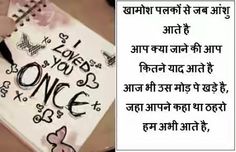 I LOVED
YOU
ONCE
खामोश पलकों से जब आंशु
आते है
आप क्या जाने की आप
कितने याद आते है
आज भी उस मोड़ पे खड़े है,
जहा आपने कहा था ठहरो
हम अभी आते है,